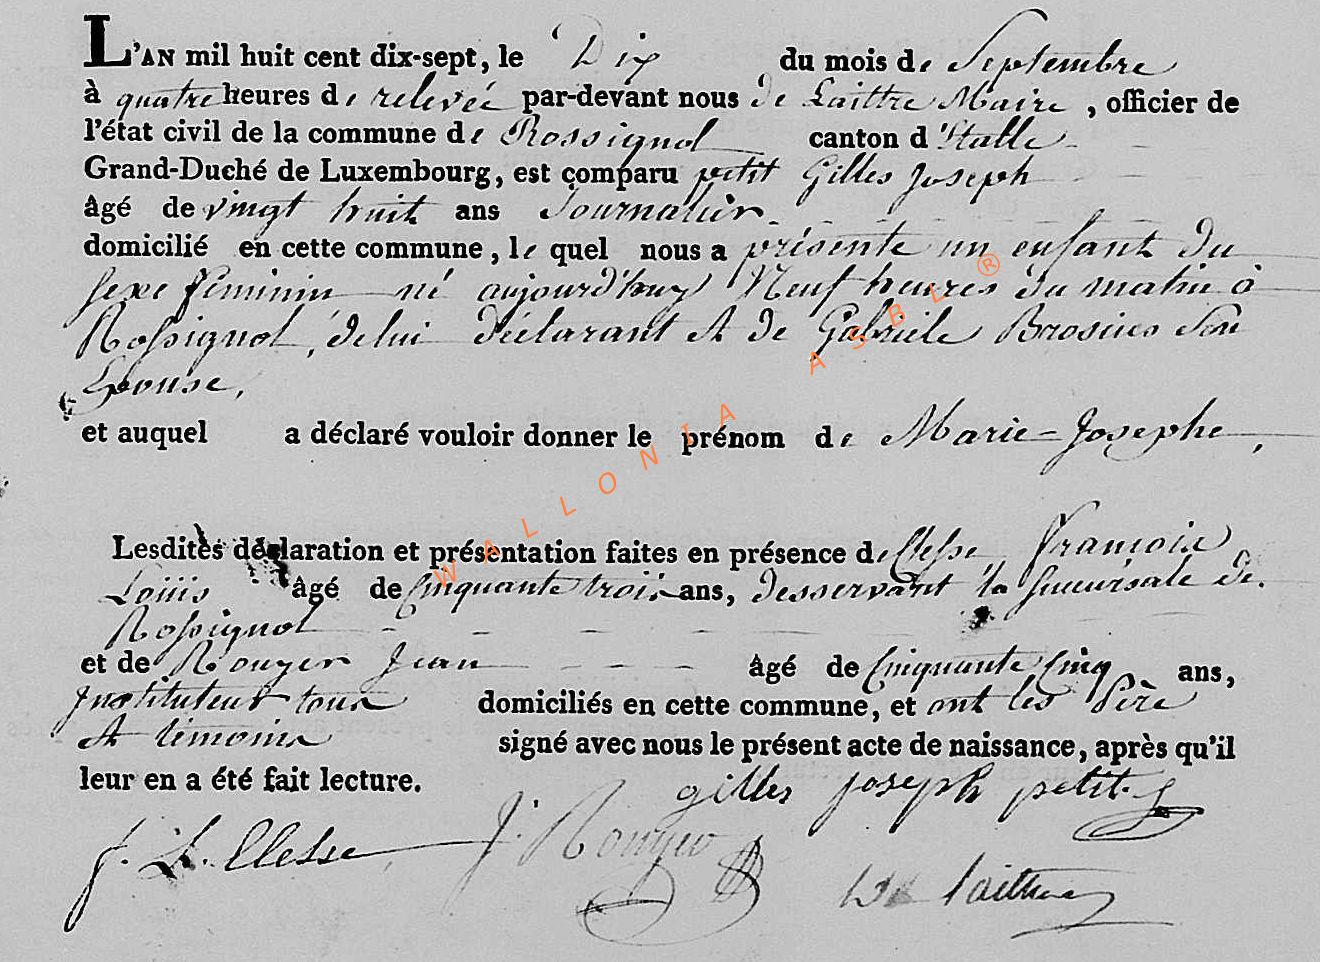 L'AN mil huit cent dix-sept, le Dix du mois de Septembre
à quatre heures de relevée par-devant nous de Laittre Maire, officier de
l'état civil de la commune de Rossignol canton d'Etalle
Grand-Duché de Luxembourg, est comparu petit Gilles Joseph
âgé de vingt huit ans Journalier
domicilié en cette commune, le quel nous a présenté un enfant du
sexe féminin né aujourd'huy Neuf heures du matin à
Rossignol, de lui déclarant et de Gabriele Brosius Son
Epouse,
et auquel a déclaré vouloir donner le prénom de Marie-Josephe,
Lesdites déclaration et présentation faites en présence de Clesse francois
Louis âgé de Cinquante trois ans, desservant la succursale de
Rossignol
et de Rouyer Jean âgé de Cinquante Cinq ans,
Instituteur tous domiciliés en cette commune, et ont les Père
et témoins signé avec nous le présent acte de naissance, après qu'il
leur en a été fait lecture.
gilles joseph petit
f. L. Clesse J. Rouyer
De Laittre
WALLONIA ASBL ®